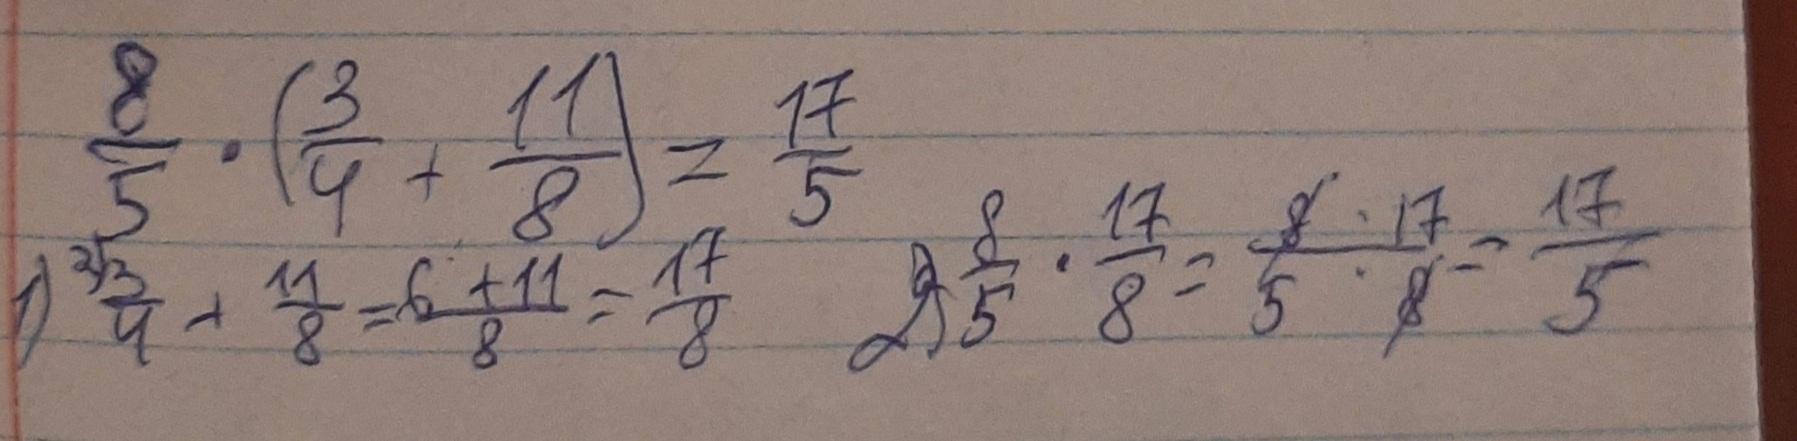 8/5 · (3/4 + 11/8) = 17/5
1) ²⁾3/4 + 11/8 = (6 + 11)/8 = 17/8
2) 8/5 · 17/8 = (8 · 17)/(5 · 8) = 17/5